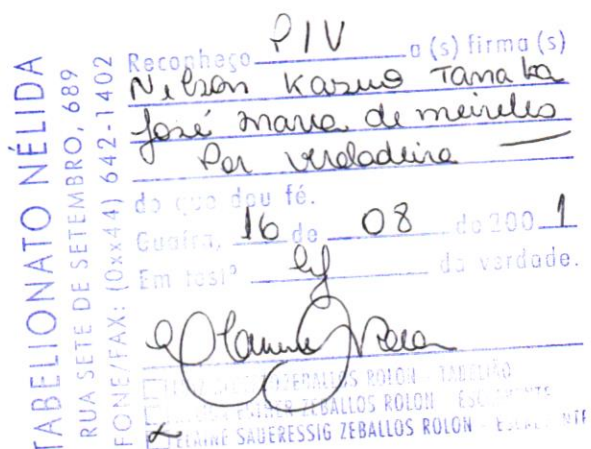 TABELIONATO NÉLIDA
RUA SETE DE SETEMBRO, 689
FONE/FAX: (0xx44) 642-1402
Reconheço PIV a (s) firma (s)
Nelson Kazuo Tanaka
José Maria de Meirelles
Por verdadeira
do que dou fé.
Guaíra, 16 de 08 de 200 1
Em testº da verdade.
ZEBALLOS ROLON - TABELIÃO
ESTHER ZEBALLOS ROLON - ESCREVENTE
ELAINE SAUERESSIG ZEBALLOS ROLON - ESCREVENTE